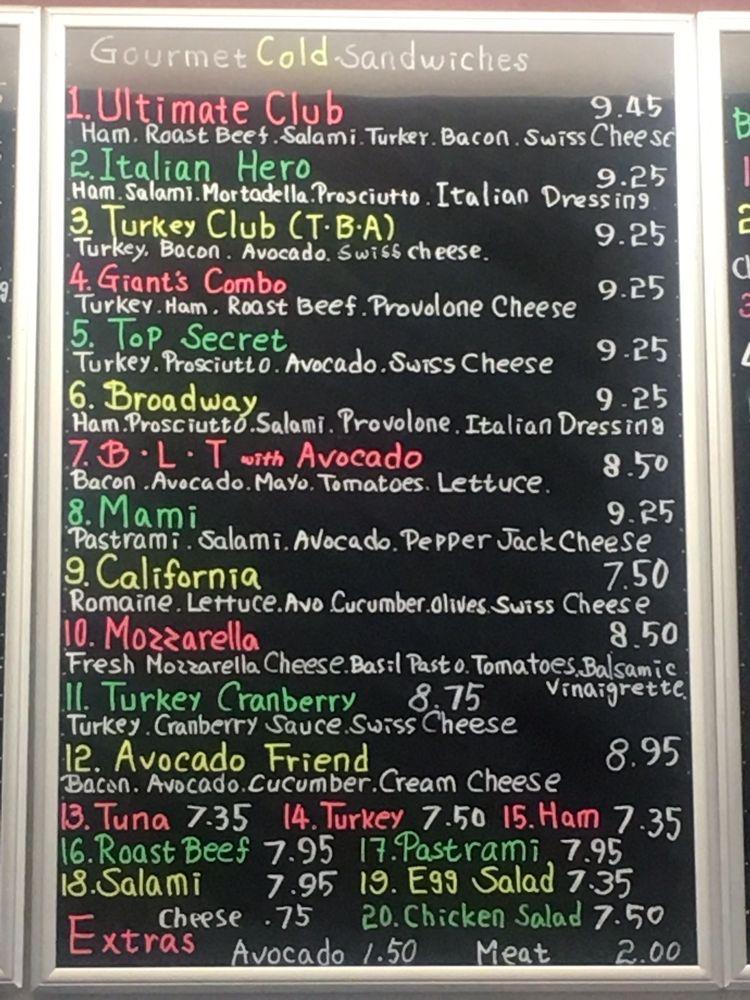 Gourmet Cold Sandwiches
1. Ultimate Club 9.45
Ham. Roast Beef. Salami. Turker. Bacon. Swiss Cheese
2. Italian Hero 9.25
Ham. Salami. Mortadella. Prosciutto. Italian Dressing
3. Turkey Club (T·B·A) 9.25
Turkey, Bacon. Avocado. Swiss cheese.
4. Giant's Combo 9.25
Turkey. Ham. Roast Beef. Provolone Cheese
5. Top Secret 9.25
Turkey. Prosciutto. Avocado. Swiss Cheese
6. Broadway 9.25
Ham. Prosciutto. Salami. Provolone. Italian Dressing
7. B·L·T with Avocado 8.50
Bacon. Avocado. Mayo. Tomatoes. Lettuce.
8. Mami 9.25
Pastrami. Salami. Avocado. Pepper Jack Cheese
9. California 7.50
Romaine. Lettuce. Avo Cucumber. Olives. Swiss Cheese
10. Mozzarella 8.50
Fresh Mozzarella Cheese. Basil Pasto. Tomatoes. Balsamic
Vinaigrette
11. Turkey Cranberry 8.75
Turkey. Cranberry Sauce. Swiss Cheese
12. Avocado Friend 8.95
Bacon. Avocado. Cucumber. Cream Cheese
13. Tuna 7.35 14. Turkey 7.50 15. Ham 7.35
16. Roast Beef 7.95 17. Pastrami 7.95
18. Salami 7.95 19. Egg Salad 7.35
Cheese .75 20. Chicken Salad 7.50
Extras Avocado 1.50 Meat 2.00